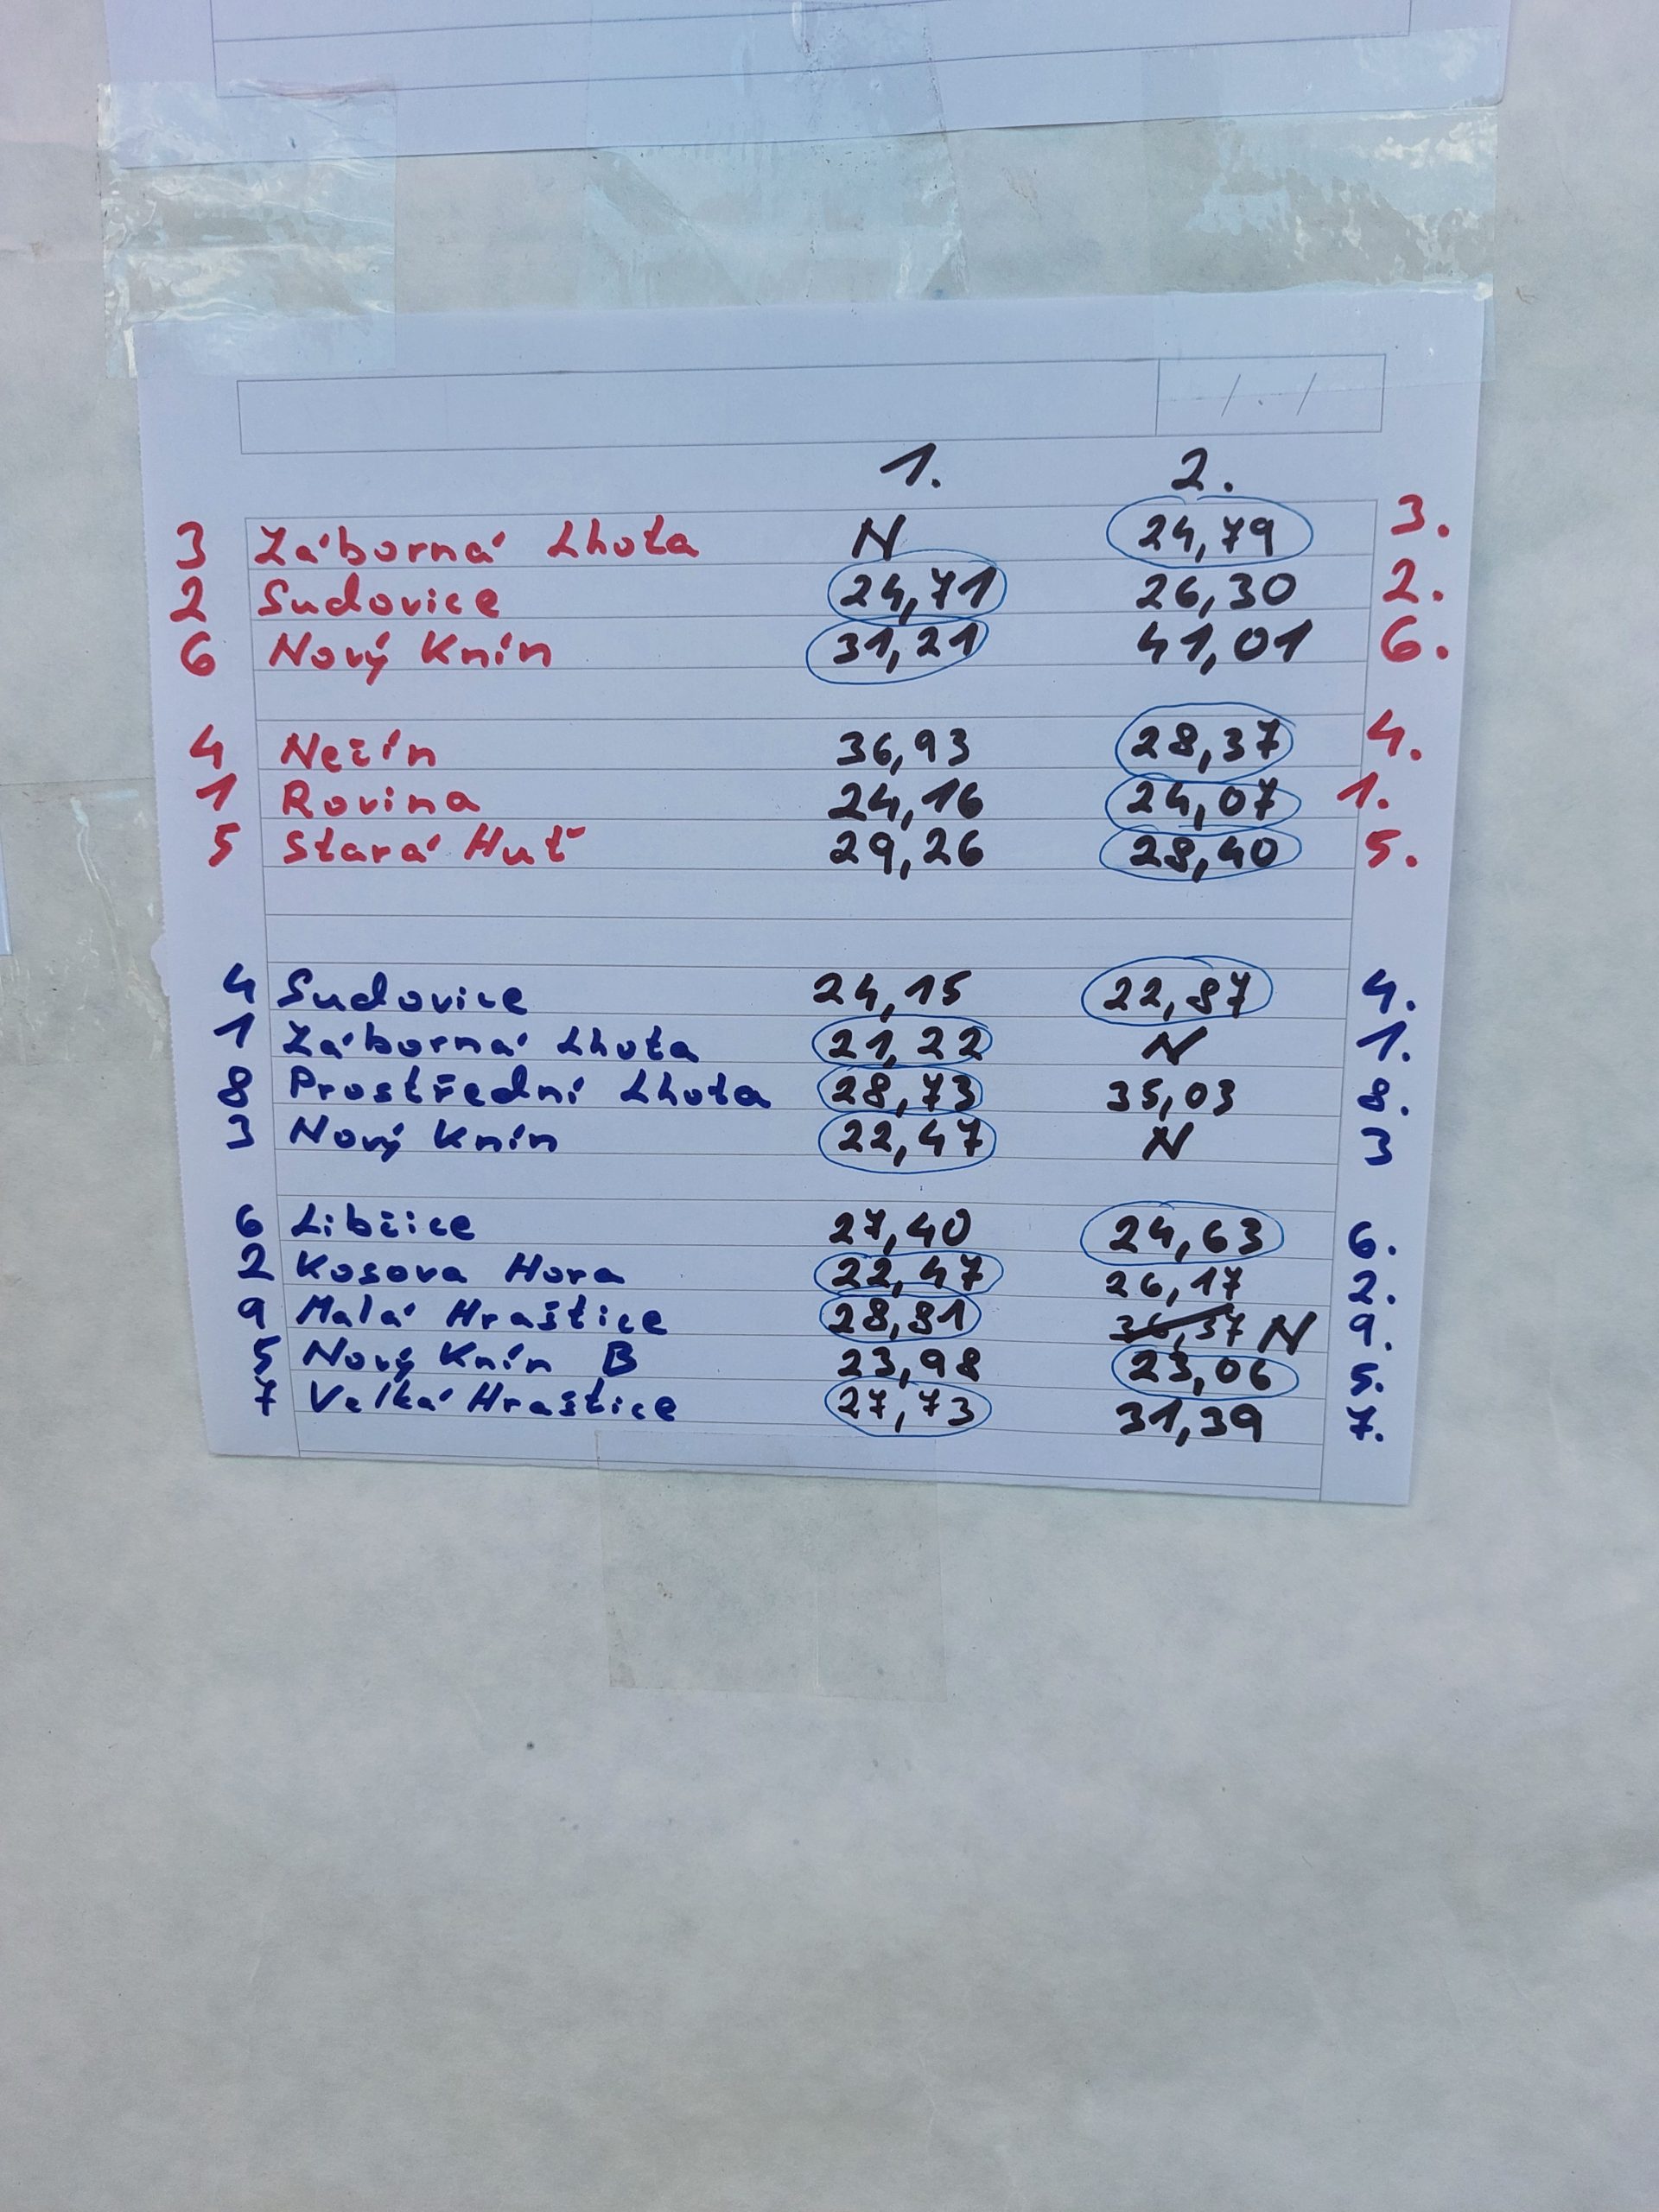 / . /
1. 2.
3 Záborná Lhota N 24,79 3.
2 Sudovice 24,71 26,30 2.
6 Nový Knín 31,21 41,01 6.
4 Nečín 36,93 28,37 4.
1 Rovina 24,16 24,07 1.
5 Stará Huť 29,26 28,40 5.
4 Sudovice 24,15 22,87 4.
1 Záborná Lhota 21,22 N 1.
8 Prostřední Lhota 28,73 35,03 8.
3 Nový Knín 22,47 N 3
6 Libčice 27,40 24,63 6.
2 Kosova Hora 22,47 26,17 2.
9 Malá Hraštice 28,81 N 9.
5 Nový Knín B 23,98 23,06 5.
7 Velká Hraštice 27,73 31,39 7.